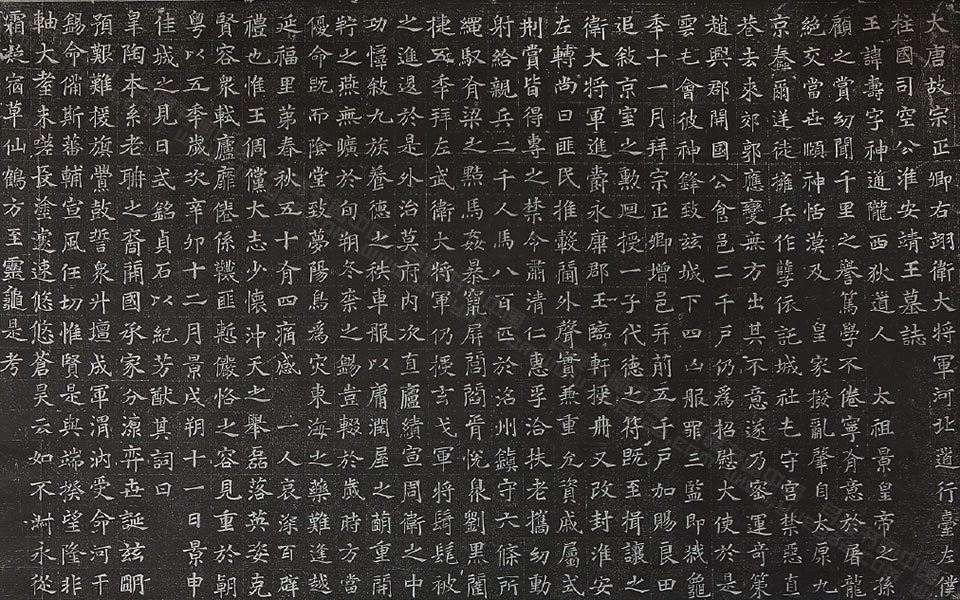 大唐故宗正卿右翊衛大將軍河北道行臺左僕
柱國司空公淮安靖王墓誌
王諱壽字神通隴西狄道人 太祖景皇帝之孫
顧之賞幼聞千里之譽篤學不倦寧有意於屠龍
絕交當世頤神恬漠及 皇家撥亂肇自太原九
京蠢爾送徒擁兵作孽依託城社屯守宮禁惡直
巷去來郊郭應變無方出其不意遂乃密運奇策
趙興郡開國公食邑二千戶仍為招慰大使於是
雲屯會彼神鋒致茲城下四凶服罪三監即戮龜
季十一月拜宗正卿增邑并前五千戶加賜良田
追敘京室之勳迴授一子代德之符既至揖讓之
衛大將軍進爵永康郡王臨軒授冊又改封淮安
左轉尚曰匪民推轂蕳外聲實兼重允資戚屬式
荆賞皆得專之禁令肅清仁惠孚洽扶老攜幼動
射給親兵二千人馬八百匹於洺州鎮守六條所
繩馭有梁之點馬姦暴竄屏閭閻胥悅梟劉黑闥
捷五季拜左武衛大將軍仍授玄戈軍將髯髦被
之進退於是外治莫府內次直廬績宣周衛之中
功懂敘九族養德之秩車服以庸潤屋之蕳重開
貯之燕無曠於旬朔冬柰之錫豈輟於歲時方當
優命既而陰堂致夢陽鳥為灾東海之藥難逢越
延福里第春秋五十有四痛感 一人哀深百辟
禮也惟王倜儻大志少懷沖天之舉磊落英姿克
賢容眾軾廬靡倦係韈匪慙儼恪之容見重於朝
粵以五季歲次辛卯十二月景戌朔十一日景申
佳城之見日式銘貞石以紀芳猷其詞曰
皐陶本系老聃之裔開國承家分源弈世誕茲嗣
預艱難援旗舋鼓誓眾升壇成軍渭汭受命河干
錫命脩斯蕃輔宣風任切惟賢是與端揆望隆非
軸大耋未嗟長塗遽速悠悠蒼昊云如不淑永從
霜凝宿草仙鶴方至靈龜是考